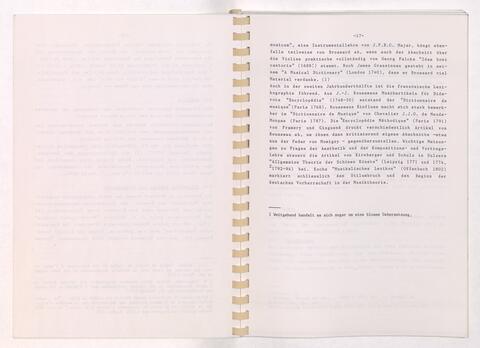 -17-
musicum", eine Instrumentallehre von J.F.B.C. Majer, hängt eben-
falls teilweise von Brossard ab, wenn auch der Abschnitt über
die Violine praktisch vollständig von Georg Falcks "Idea boni
cantoris" (1688) stammt. Noch James Grassineau gesteht in sei-
nem "A Musical Dictionary" (London 1740), dass er Brossard viel
Material verdanke. (1)
Auch in der zweiten Jahrhunderthälfte ist die französische Lexi-
kographie führend. Aus J.-J. Rousseaus Musikartikeln für Dide-
rots "Encyclopédie" entstand der "Dictionnaire de
musique" (Paris 1768). Rousseaus Einfluss macht sich stark bemerk-
bar im "Dictionnaire de Musique" von Chevalier J.J.O. de Meude-
Monpas (Paris 1787). Die "Encyclopédie Méthodique" (Paris 1791)
von Framery und Ginguené druckt verschiedentlich Artikel von
Rousseau ab, um ihnen dann kritisierend eigene Abschnitte -etwa
aus der Feder von Momigny - gegenüberzustellen. Wichtige Aeusse-
rungen zu Fragen der Aesthetik und der Kompositions- und Vortrags-
lehre steuern die Artikel von Kirnberger und Schulz in Sulzers
"Allgemeine Theorie der Schönen Künste" (Leipzig 1771 und 1774,
1792-94) bei. Kochs "Musikalisches Lexikon" (Offenbach 1802)
markiert schliesslich den Stilumbruch und den Beginn der
deutschen Vorherrschaft in der Musiktheorie.
1 Weitgehend handelt es sich sogar um eine blosse Uebersetzung.